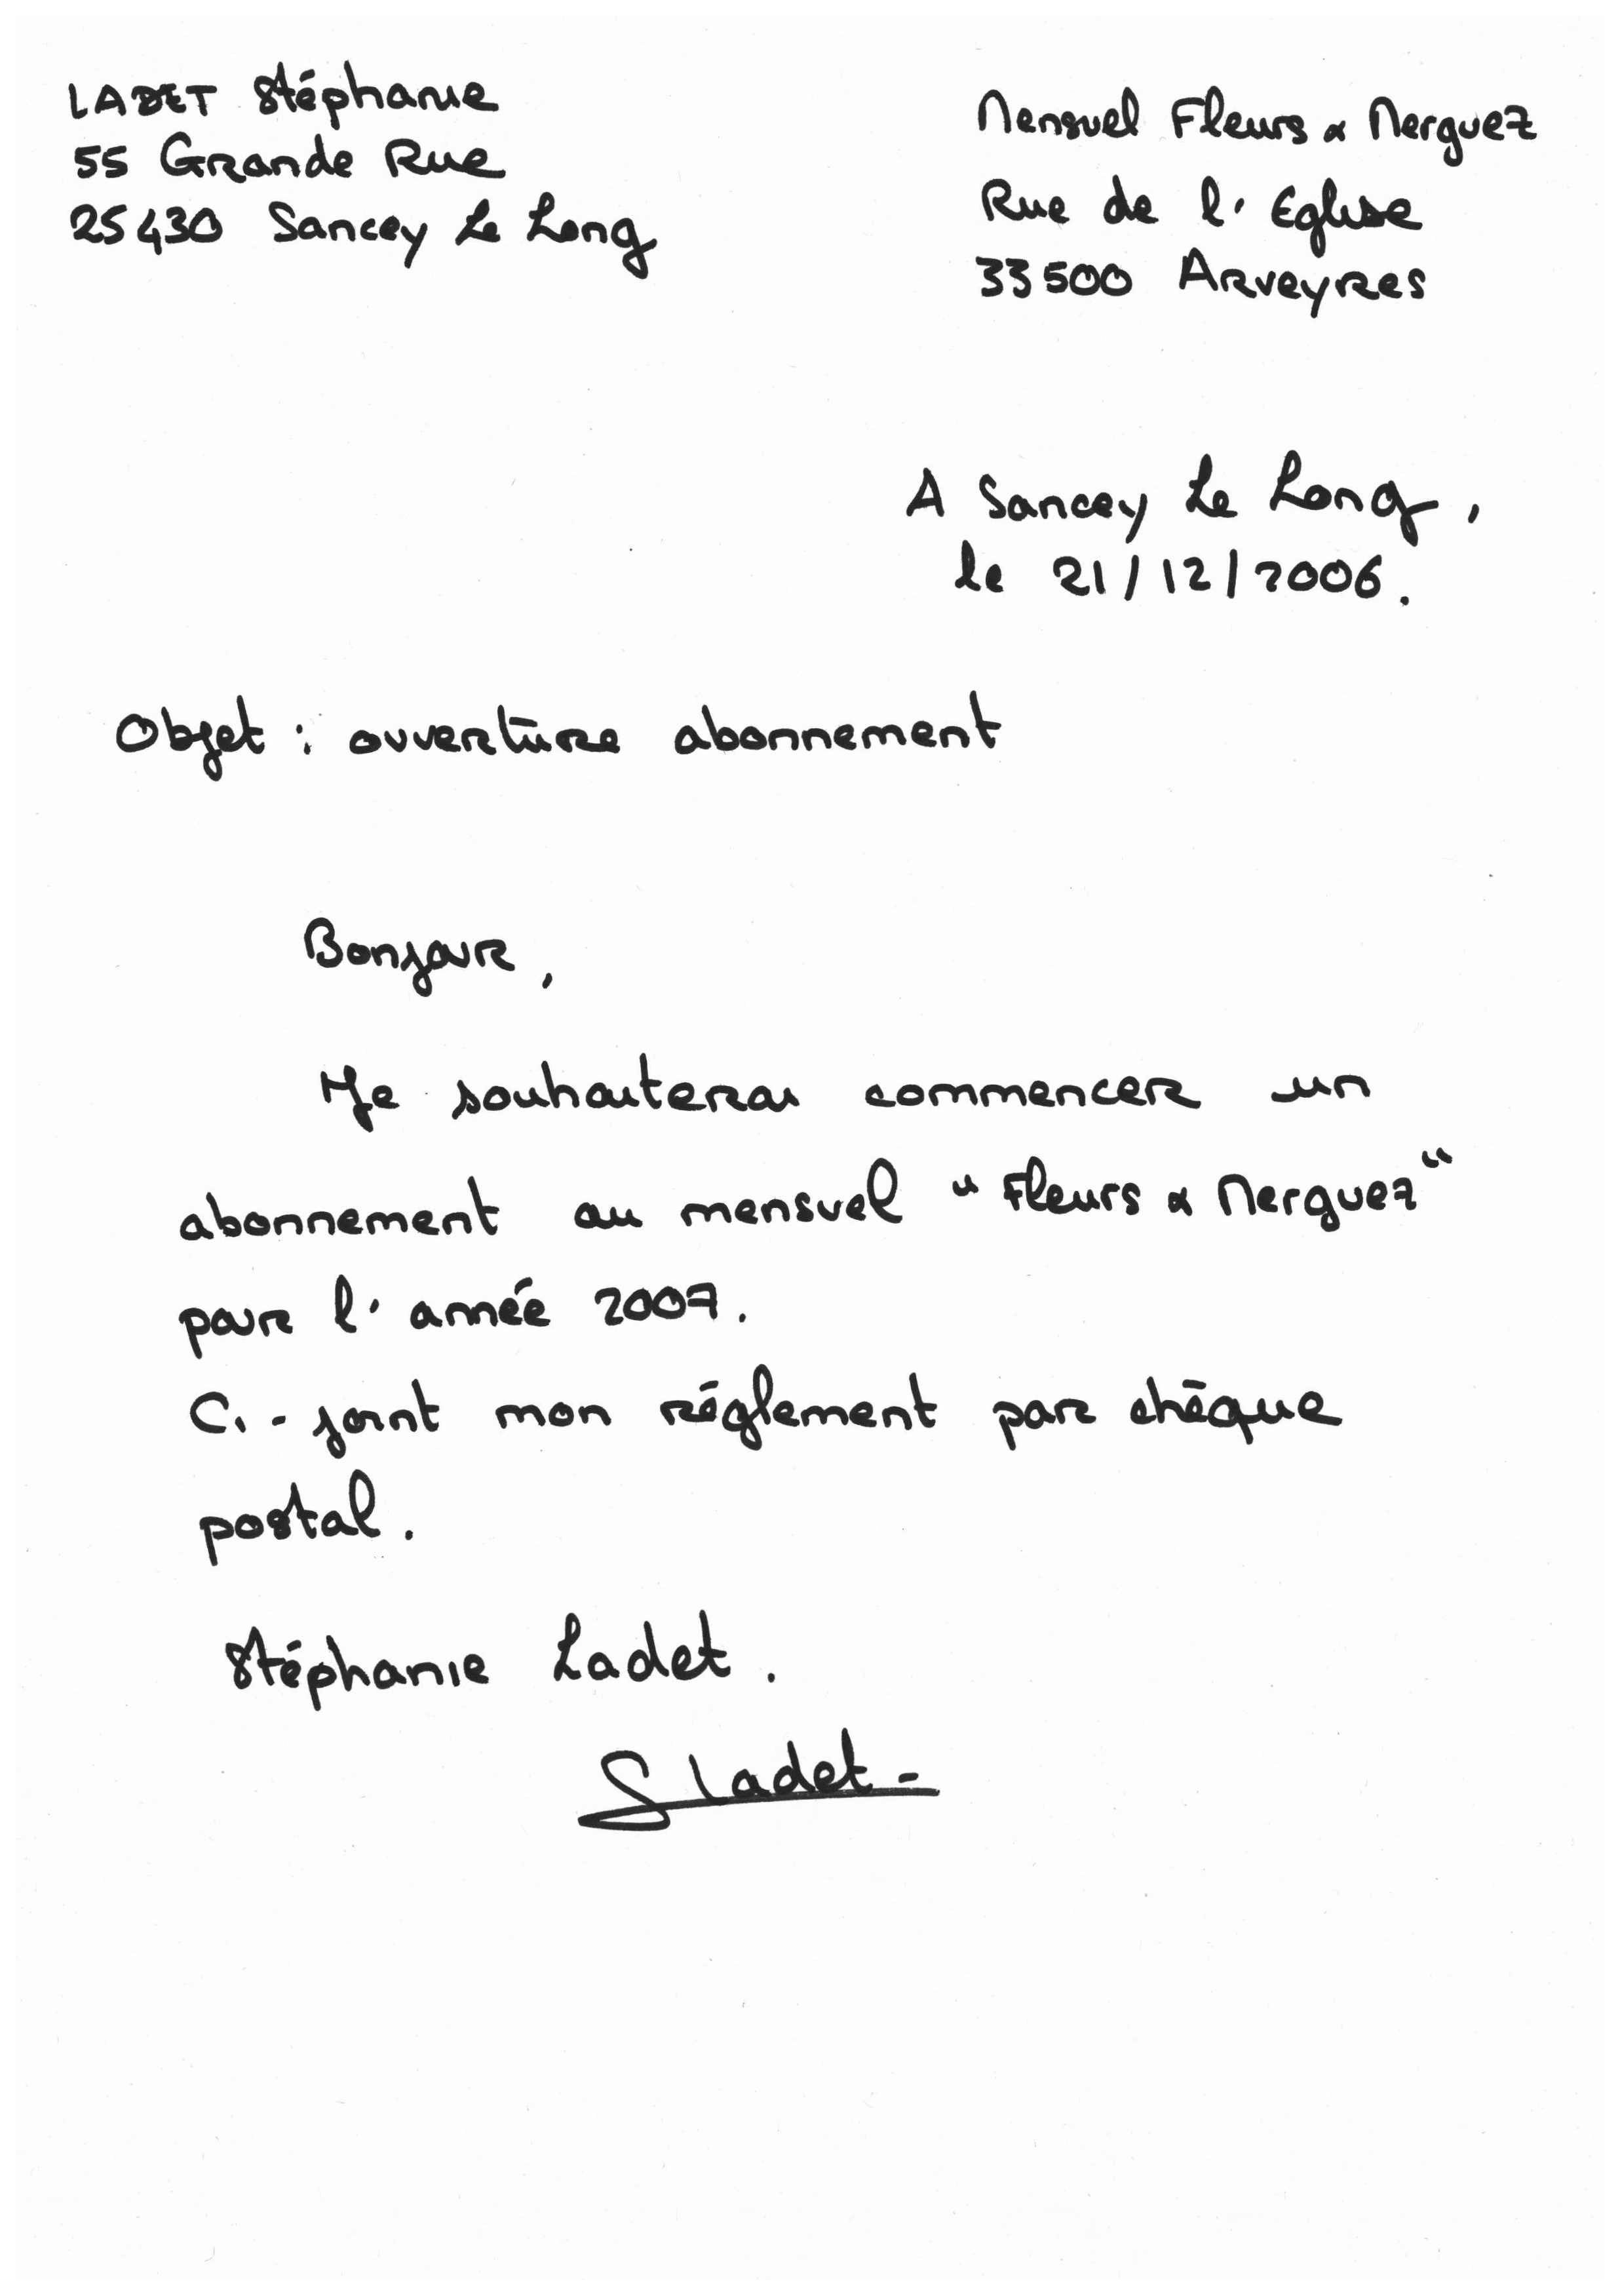 LADET Stéphanie
55 Grande Rue
25430 Sancey Le Long
Mensuel Fleurs & Merguez
Rue de l'Eglise
33500 Arveyres
A Sancey Le Long,
le 21/12/2006.
Objet : ouverture abonnement
Bonjour,
Je souhaiterai commencer un
abonnement au mensuel "Fleurs & Merguez"
pour l'année 2007.
Ci-joint mon réglement par chèque
postal.
Stéphanie Ladet.
S Ladet-